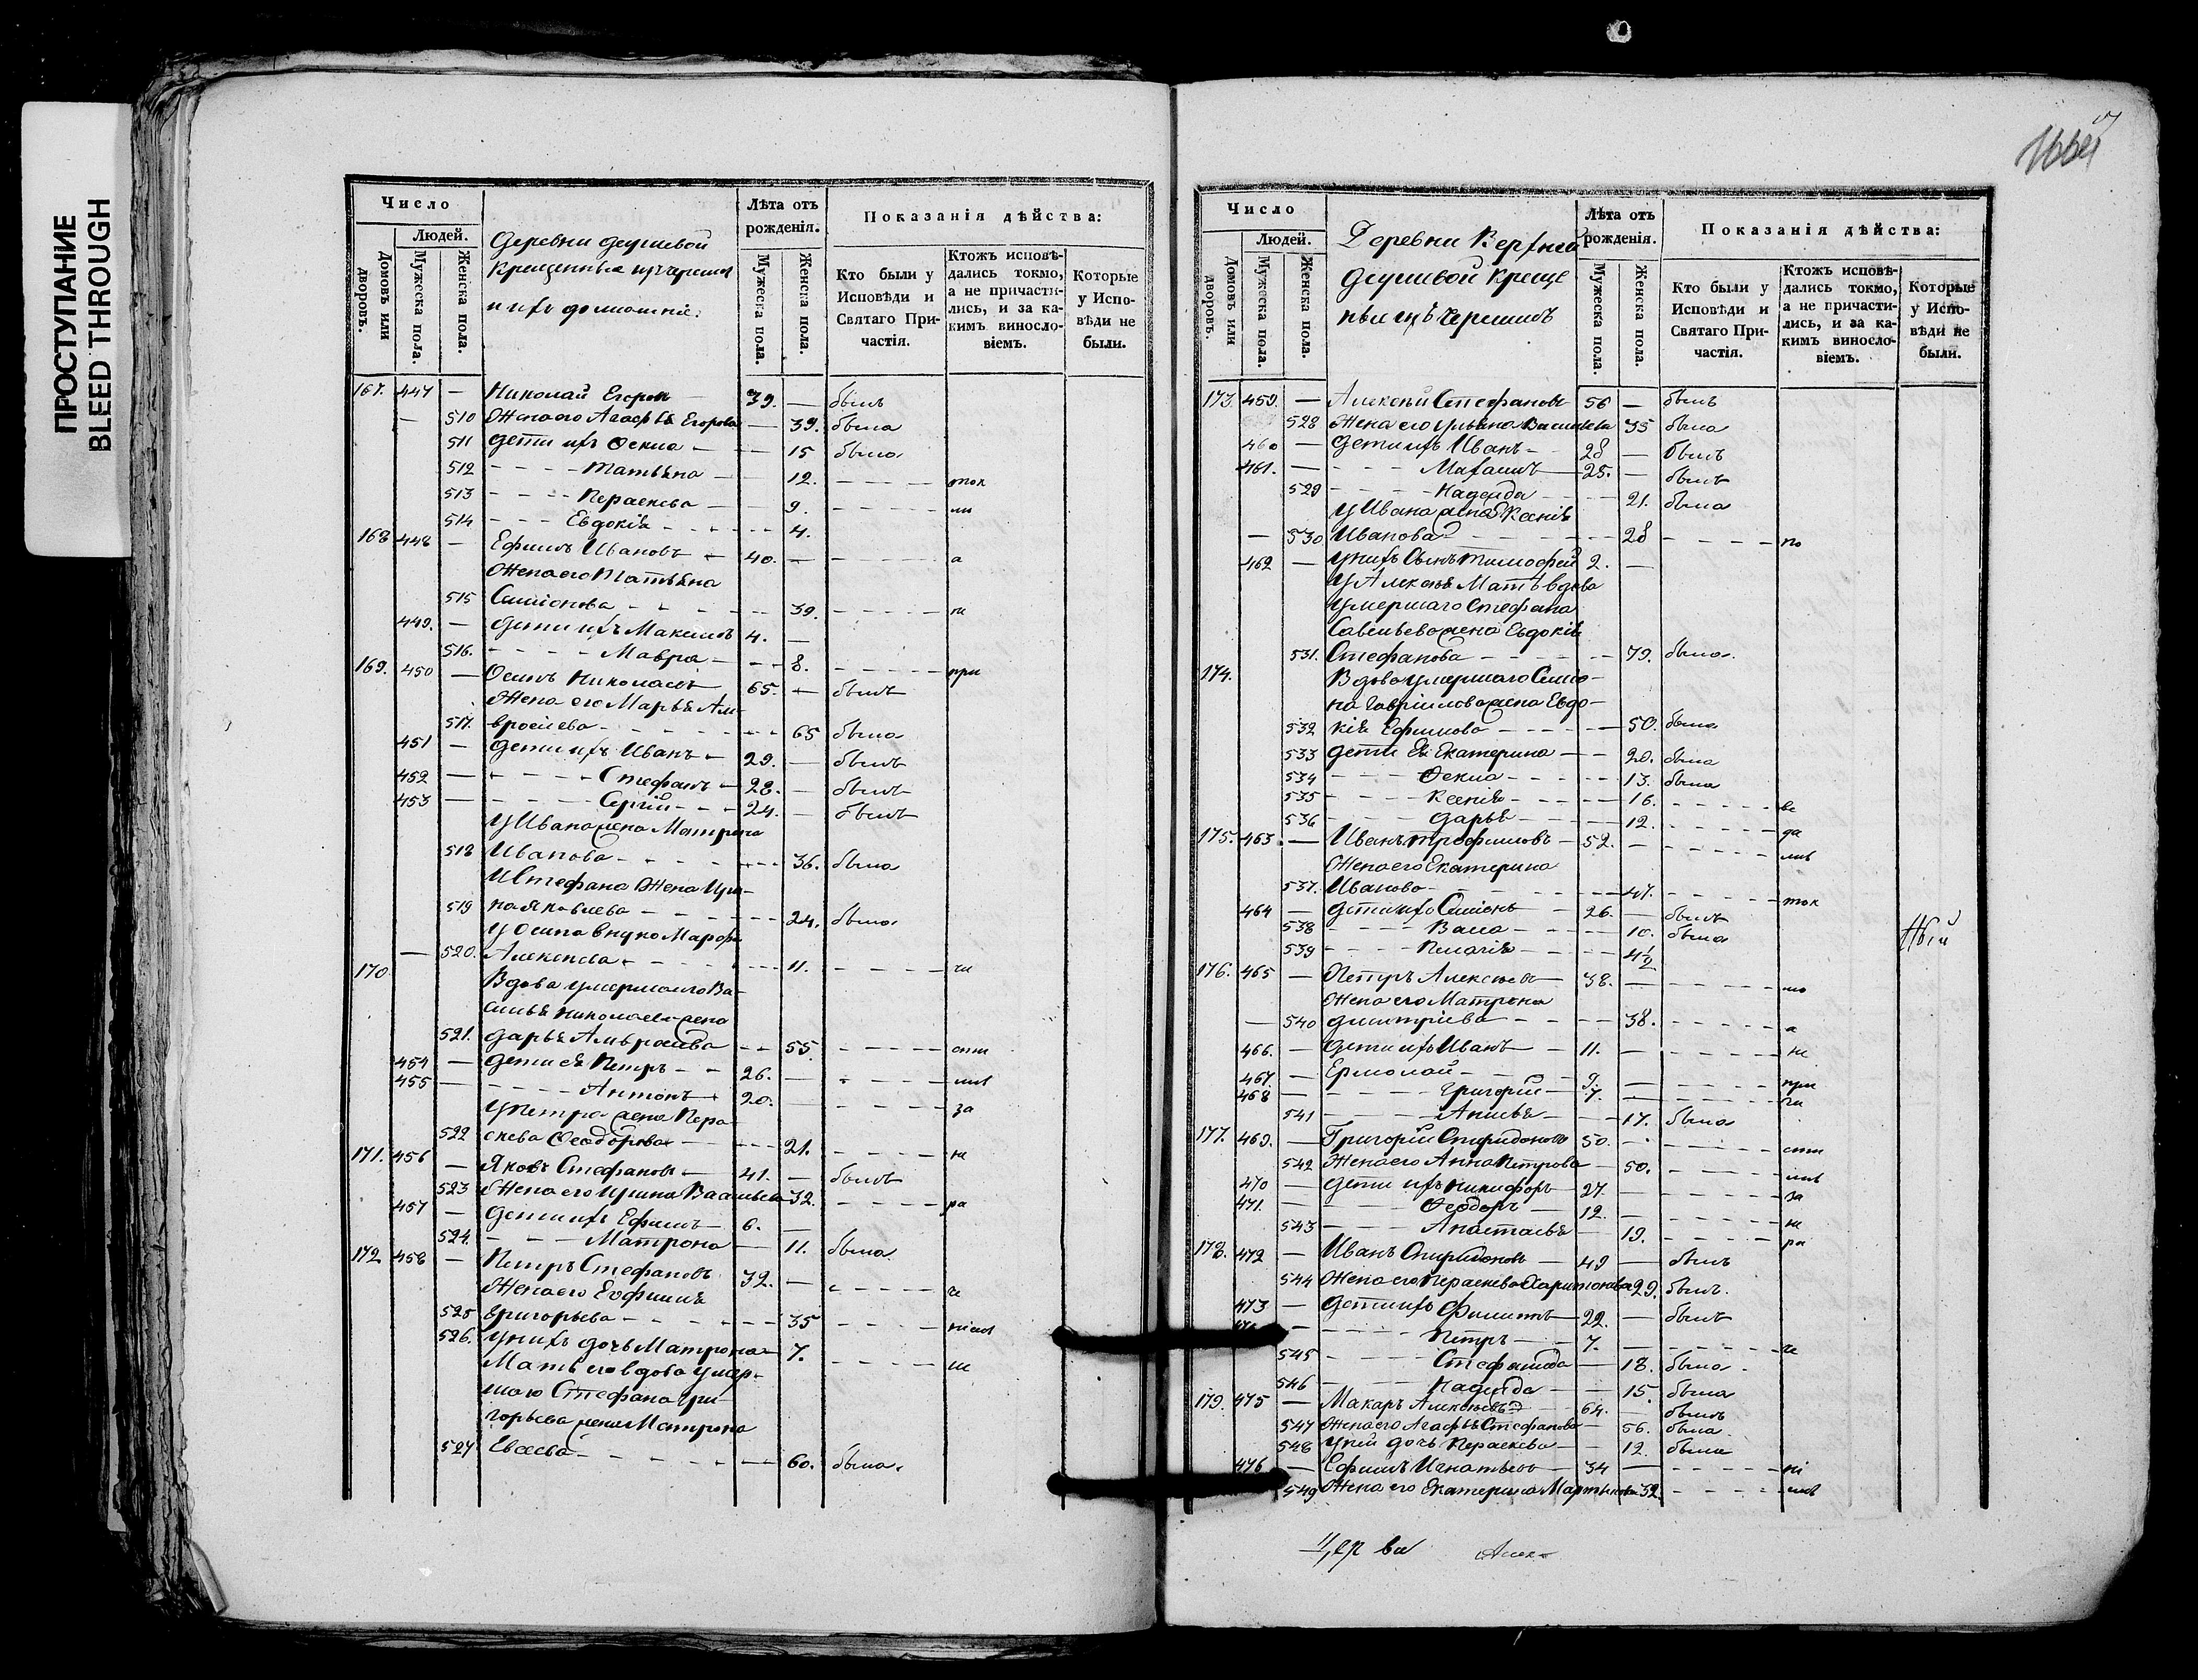 ПРОСТУПАНИЕ
BLEED THROUGH
Число
Людей.
Домовъ или дворовъ.
Мужеска пола.
Женска пола.
Деревни
крещенные изъ черемис
и ихъ домашніе:
Лѣта отъ рожденія.
Мужеска пола.
Женска пола.
Показанія дѣйства:
Кто были у Исповѣди и Святаго Причастія.
Ктожъ исповѣдались токмо, а не причастились, и за какимъ винословіемъ.
Которые у Исповѣди не были.
167. 447 — Николай Егоровъ 39. — былъ
— 510 Жена его Агафья Егорова — 39. была
511 Дети ихъ Фекла — 15 была
512 Татьяна — 12. ток
513 Параскева — 9. ли
514 Евдокія 4.
168 448 — Ефимъ Ивановъ 40. — а
Жена его Татьяна
515 Симіонова 39. не
449. — Дети ихъ Максимъ 4. —
516. Мавра 8. при
169. 450 — Осипъ Николаевъ 65. — былъ
Жена его Марья Ам-
517. вросіева 65 была
451 — Дети ихъ Иванъ 29. — былъ
452 — Стефанъ 28. — былъ
453 — Сергій 24. — былъ
У Ивана жена Матрена
518 Иванова 36. была
У Стефана Жена Ири-
519 на Яковлева 24. была
У Осипа внука Марфа
— 520. Алексеева 11. чи
170. Вдова умершаго Ва-
силья Николаева жена
521. Дарья Амвросіева 55. сти
454 — Дети ея Петръ 26. — лись
455 — Антонъ 20. — за
У Петра жена Пара-
522 скева Феодорова 21. не
171. 456 — Яковъ Стефановъ 41. — былъ
523 Жена его Ирина Васильева 32. ра
457 — Дети ихъ Ефимъ 6. —
524. Матрона — 11. была
172 458 — Петръ Стефановъ 32. — че
Жена его Евфимія
525 Григорьева 35 ніем
526. У нихъ дочь Матрона 7.
Мать его вдова умер-
шаго Стефана Гри-
горьева жена Матрона
527 Евсеева 60. была.
Число
Людей.
Домовъ или дворовъ.
Мужеска пола.
Женска пола.
Деревни Верхней
креще
ные изъ Черемисъ
Лѣта отъ рожденія.
Мужеска пола.
Женска пола.
Показанія дѣйства:
Кто были у Исповѣди и Святаго Причастія.
Ктожъ исповѣдались токмо, а не причастились, и за какимъ винословіемъ.
Которые у Исповѣди не были.
173. 459. — Алексѣй Стефановъ 56 — былъ
528 Жена его Ульяна Васильева 55 была
460 — Дети ихъ Иванъ 28 — былъ
461. — Михаилъ 25. — былъ
529 Надежда 21. была
У Ивана жена Ксенія
— 530 Иванова 28 по
462 — У нихъ сынъ Тимофей 2. —
У Алексѣя Мать вдова
умершаго Стефана
Савельева жена Евдокія
531. Стефанова 79. была.
174. Вдова умершаго Симіо-
на Гавріилова жена Евдо-
532 кія Ефимова 50. была
533 Дети ея Екатерина 20. была
534 Фекла 13. была
535 Ксенія 16. ве
536 Дарья 12. да
175. 463. — Иванъ Трофимовъ 52. — лись
Жена его Екатерина
537. Иванова 47. ток
464 — Дети ихъ Симіонъ 26. — былъ
538 Васса 10. была
539 Пелагія 4½
176. 465 — Петръ Алексѣевъ 38. — мо
Жена его Матрена
— 540 Дмитріева 38. а
466. — Дети ихъ Иванъ 11. — не
467. — Ермолай 9. — при
468 — Григорій 7. — чи
541 Анисья 17. была
177. 469. — Григорій Спиридоновъ 50. — сти
542 Жена его Анна Петрова — 50. лись
470 — Дети ихъ Никифоръ 27. — за
471. — Феодоръ 12. — не
543 Анастасья 19. ра
178. 472 — Иванъ Спиридоновъ 49 — былъ
544 Жена его Параскева Харитонова 29. была.
473 — Дети ихъ Филиппъ 22. — былъ
474 — Петръ 7. — че
545 Стефанида 18. была.
546 Надежда 15 была
179. 475 — Макаръ Алексѣевъ 64. — былъ
547 Жена его Агафья Стефанова 56. была.
548 У ней дочь Параскева 12 была
476 — Ефимъ Игнатьевъ 34 — ні
549 Жена его Екатерина Мартынова 32.